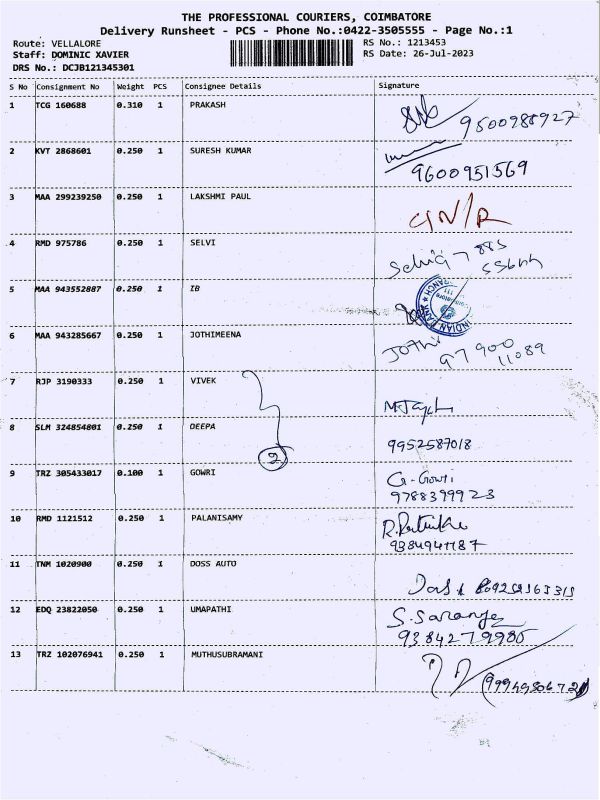 THE PROFESSIONAL COURIERS, COIMBATORE
Delivery Runsheet - PCS - Phone No.:0422-3505555 - Page No.:1
Route: VELLALORE RS No.: 1213453
Staff: DOMINIC XAVIER RS Date: 26-Jul-2023
DRS No.: DCJB121345301
S No Consignment No Weight PCS Consignee Details Signature
1 TCG 160688 0.310 1 PRAKASH
9500988927
2 KVT 2868601 0.250 1 SURESH KUMAR
9600951569
3 MAA 299239250 0.250 1 LAKSHMI PAUL
4 RMD 975786 0.250 1 SELVI
5 MAA 943552887 0.250 1 IB
INDIAN BANK
6 MAA 943285667 0.250 1 JOTHIMEENA
Jothi 97900
11089
7 RJP 3190333 0.250 1 VIVEK
8 SLM 324854801 0.250 1 DEEPA
2 9952587018
9 TRZ 305433017 0.100 1 GOWRI G-Gowri
9788399923
10 RMD 1121512 0.250 1 PALANISAMY
9384941187
11 TNM 1020900 0.250 1 DOSS AUTO
12 EDQ 23822050 0.250 1 UMAPATHI
9384279980
13 TRZ 102076941 0.250 1 MUTHUSUBRAMANI